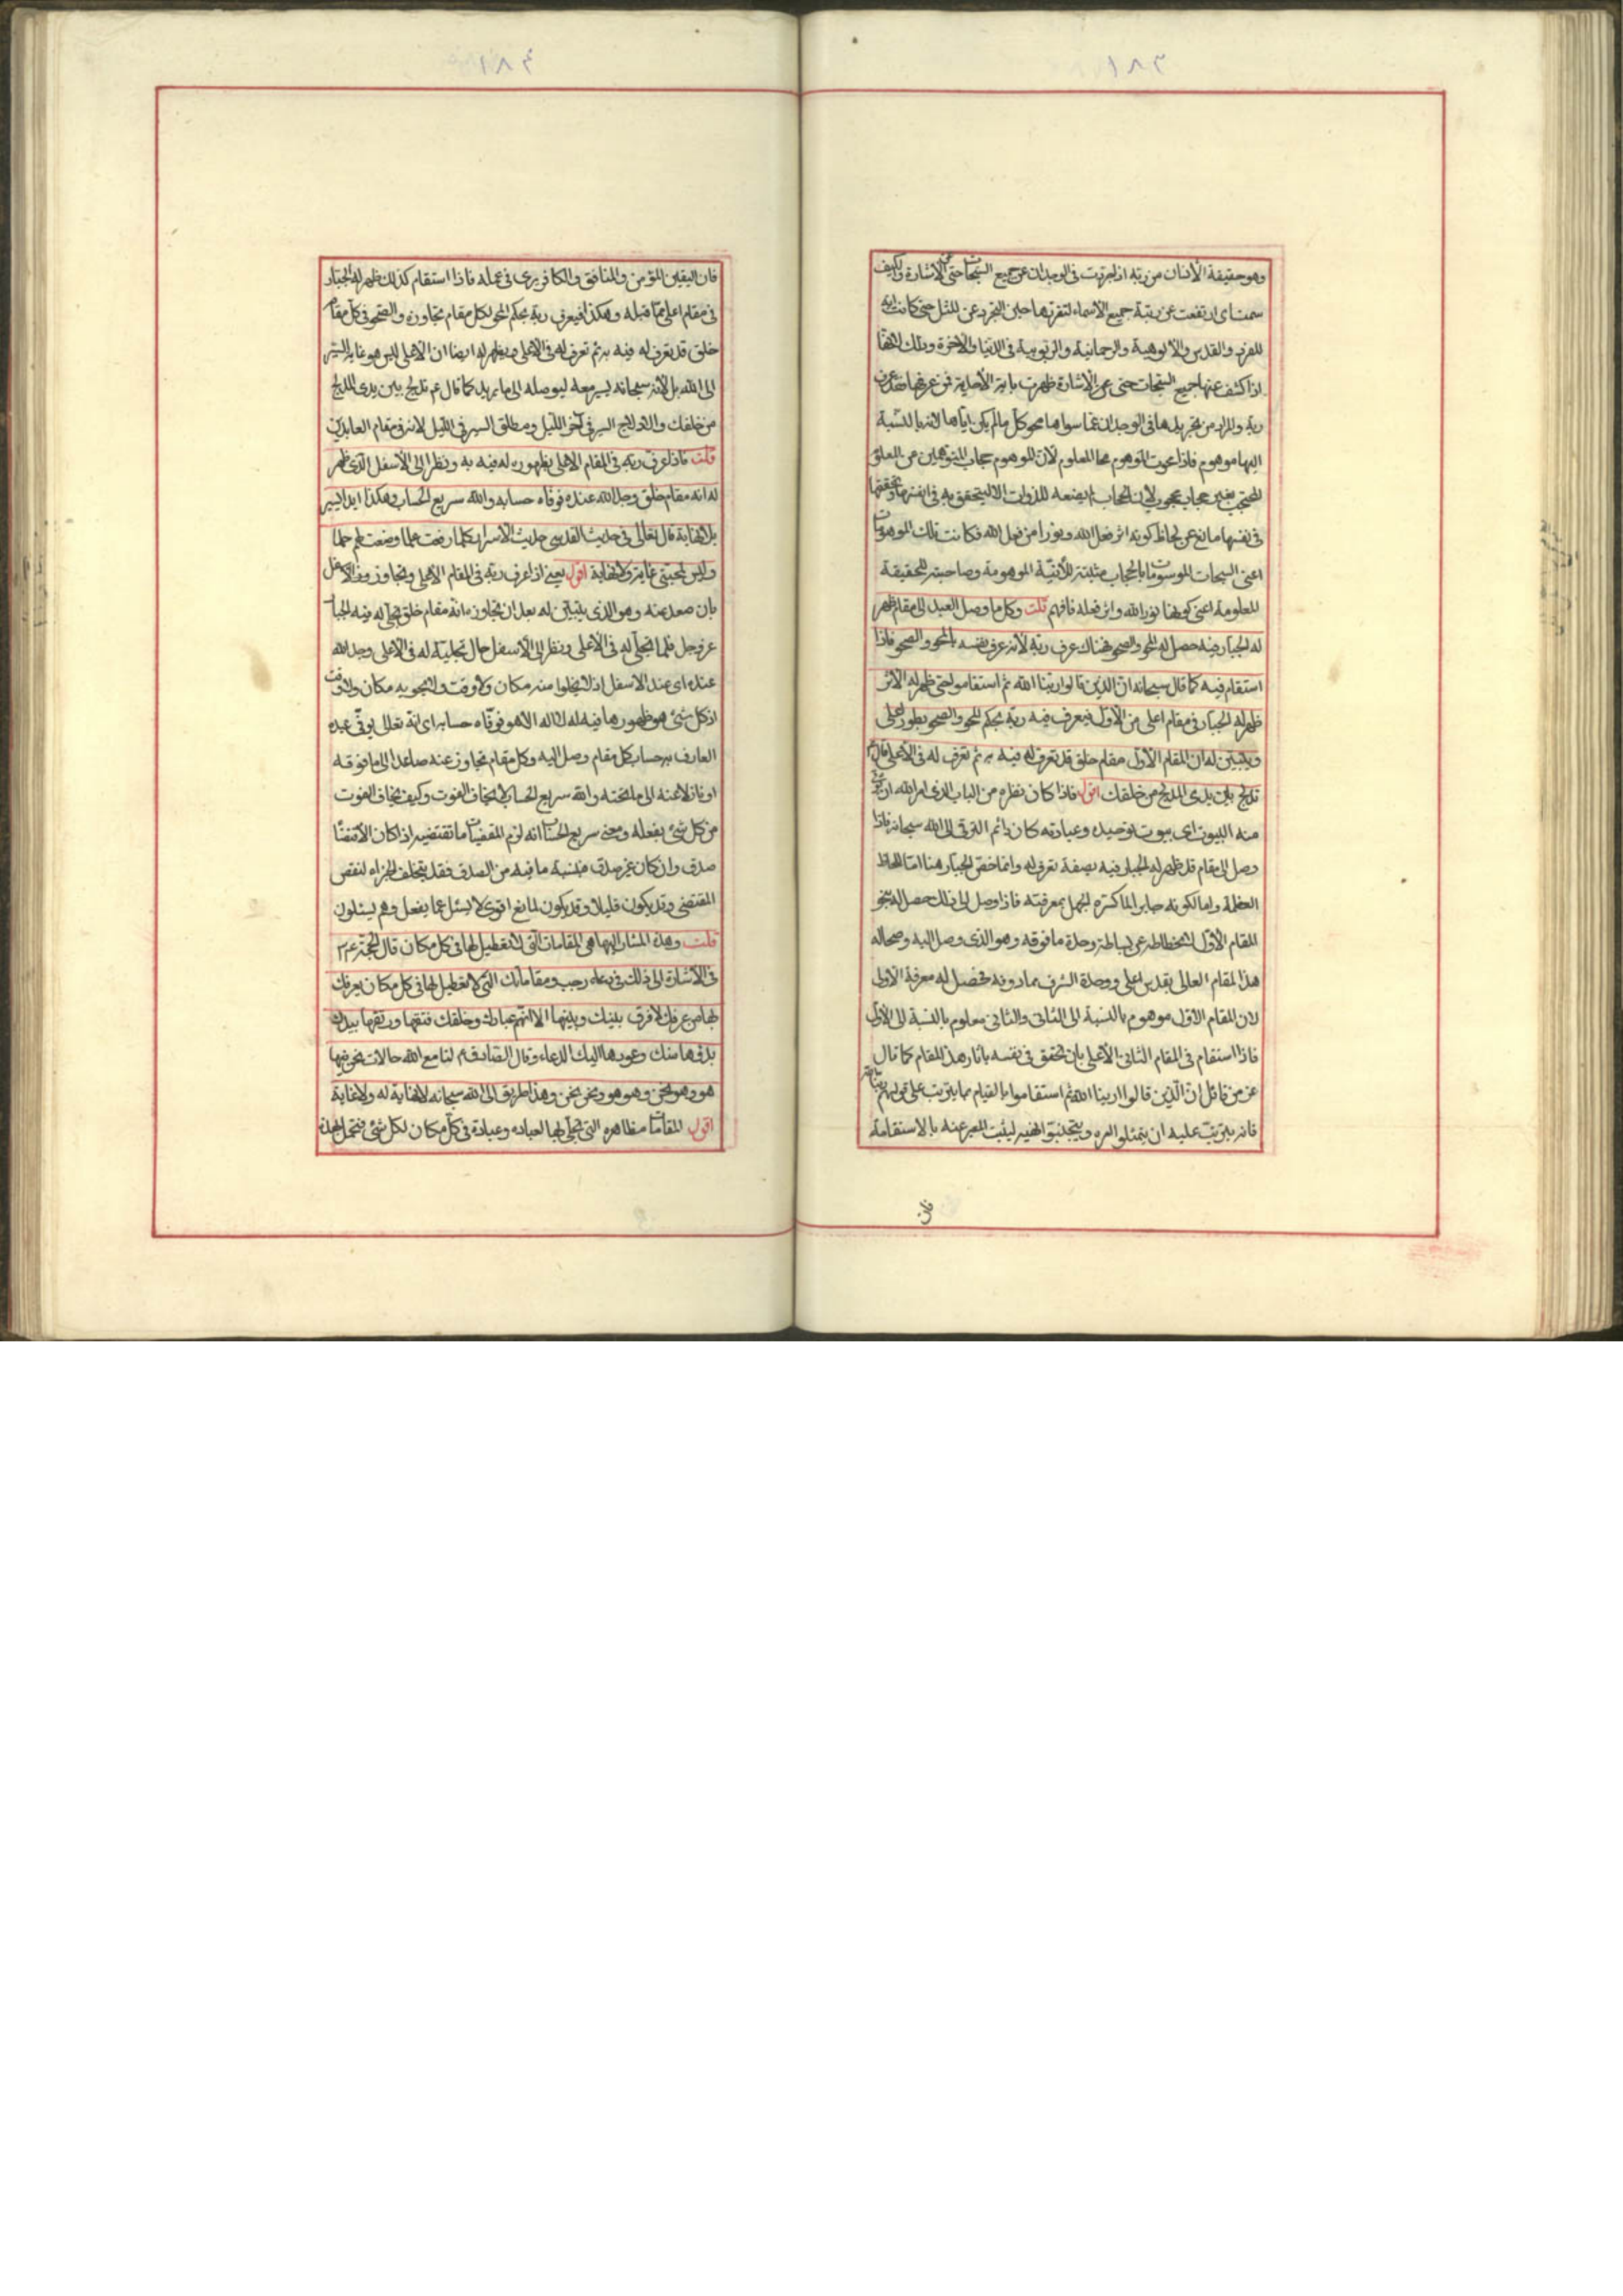 ١٨٣
وهو حقيقة الأنسان من ربه اذا جردت فى الوجدان عن جميع السبحات حتى عن الاشارة والكيف
سمت اى ارتفعت عن رتبة جميع الأسماء لتفردها حين التجرد عن المثل حتى كانت اية
للعزة والقدس والألوهية والرحمانية والربوبية فى الدنيا والاخرة وذلك لانها
اذا كشف عنها جميع السبحات حتى عن الاشارة ظهرت باية الأحدية فمن عرفها فقد عرف
ربه والمراد من تجريدها فى الوجدان عما سواها محو كل ما لم يكن اياها لانه بالنسبة
اليها موهوم فاذا محوت الموهوم صحا المعلوم لأن الموهوم حجاب المتوهمين من المعلوم
المحتجب بغير حجاب محجوب لان الحجاب لم يضعه للذوات الا ليتحقق به فى انفسها وتحققها
فى نفسها مانع عن لحاظ كونه اثر فعل الله ونورا من فعل الله فكانت تلك الموهومات
اعنى السبحات الموسومات بالحجاب مثبتة للأنية الموهومة وصاحبة للحقيقة
المعلومة اعنى كونها نور الله واثر فعله فافهم قلت وكل ما وصل العبد الى مقام ظهر
له الجبار فيه حصل له المحو والصحو فهناك عرف ربه لأنه عرف نفسه بالمحو والصحو فاذا
استقام فيه كما قال سبحانه ان الذين قالوا ربنا الله ثم استقاموا حتى ظهر له الأثر
ظهر له الجبار فى مقام اعلى من الأول فيعرف فيه ربه بحكم المحو والصحو بطور اعلى
ويتبين له ان المقام الأول مقام خلق قد تعرف له فيه به ثم تعرف له فى الأعلى قال ع
تدلج بين يدى المدلج من خلقك اقول فاذا كان نظره من الباب الذى امر الله ان تؤتى
منه البيوت اى بيوت توحيده وعبادته كان دائم الترقى الى الله سبحانه فاذا
وصل الى مقام قد ظهر له الجبار فيه بصفة تعرف له وانما خص الجبار هنا اما للحاظ
العظمة واما لكونه جابرا لما كسره الجهل بمعرفته فاذا وصل الى ذلك حصل له محو
المقام الأول لانحطاطه عن بساطة وحدة ما فوقه وهو الذى وصل اليه وصحا له
هذا المقام العالى بقدس اعلى ووحدة اشرف مما دونه فحصل له معرفة الأولى
لان المقام الاول موهوم بالنسبة الى الثانى والثانى معلوم بالنسبة الى الأول
فاذا استقام فى المقام الثانى الأعلى بان تحقق فى نفسه باثار هذا المقام كما قال
عز من قائل ان الذين قالوا ربنا الله ثم استقاموا بالقيام بما يترتب على قولهم ربنا الله
فانه يترتب عليه ان يمتثلوا امره ويجتنبوا نهيه ليثبت المعبر عنه بالاستقامة
فان
١٨٤
فان اليقين المؤمن والمنافق والكافر يرى فى عمله فاذا استقام كذلك ظهر له الجبار
فى مقام اعلى مما قبله وهكذا فيعرف ربه بحكم المحو لكل مقام تجاوزه والصحو فى كل مقام
خلق قد تعرف له فيه به ثم تعرف له فى الاعلى ويظهر له ايضا ان الاعلى ليس هو غاية السير
الى الله بل لأنه سبحانه يسير معه ليوصله الى ما يريد كما قال ع تدلج بين يدى المدلج
من خلقك والادلاج السير فى آخر الليل ومطلق السير فى الليل لانه فى مقام العابدين
قلت فاذا عرف ربه فى المقام الاعلى بظهوره له فيه به ونظر الى الأسفل الذى ظهر
له انه مقام خلق وجد الله عنده فوفاه حسابه والله سريع الحساب وهكذا ابدا يسير
بلا نهاية قال تعالى فى حديث القدسى حديث الأسرار كلما رفعت لهم علما وضعت لهم حلما
وليس لمحبتى غاية ولا نهاية اقول يعنى اذا عرف ربه فى المقام الاعلى وتجاوز رتبة الأسفل
بان صعد عنه وهو الذى يتبين له بعد ان تجاوزه انه مقام خلق تجلى له فيه الجبار
عز وجل فلما تجلى له فى الأعلى ونظر الى الأسفل حال تجليه له فى الأعلى وجد الله
عنده اى عند الاسفل اذ لا يخلوا منه مكان ولا وقت ولا يحويه مكان ولا وقت
اذ كل شئ هو ظهوره بما فيه له لا اله الا هو فوفاه حسابه اى انه تعالى يوفى عبده
العارف به حساب كل مقام وصل اليه وكل مقام تجاوز عنه صاعدا الى ما فوقه
او نازلا عنه الى ما تحته والله سريع الحساب لا يخاف الفوت وكيف يخاف الفوت
من كل شئ بفعله ومعنى سريع الحساب انه لزم المقتضيات ما تقتضيه اذا كان الأقتضاء
صدق وان كان غير صدق فبنسبة ما فيه من الصدق فقد يتخلف الجزاء لنقص
المقتضى وقد يكون قليلا وقد يكون لمانع اقوى لا يسئل عما يفعل وهم يسئلون
قلت وهذه المشار اليها هى المقامات التى لا تعطيل لها فى كل مكان قال الحجة ع
فى الأشارة الى ذلك فى دعاء رجب ومقاماتك التى لا تعطيل لها فى كل مكان يعرفك
بها من عرفك لا فرق بينك وبينها الا انهم عبادك وخلقك فتقها ورتقها بيدك
بدؤها منك وعودها اليك الدعاء وقال الصادق ع لنا مع الله حالات نحن فيها
هو وهو نحن وهو هو ونحن نحن وهذا طريق الى الله سبحانه لا نهاية له ولا غاية
اقول المقامات مظاهره التى تجلى بها لعباده وعباده فى كل مكان لكل شئ فتحمل لهذه